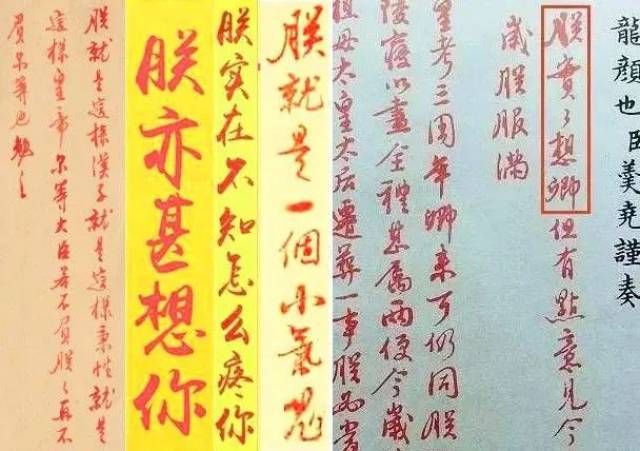 龍顏也臣羹堯謹奏
朕實々想卿但有點意見今
歲朕服滿
皇考三周年卿来可仍同朕
陵寢以盡全禮甚屬兩便今歲
祖母太皇太后遷葬一事朕必
朕就是一個小氣鬼
朕实在不知怎么疼你
朕亦甚想你
朕就是這樣漢子就是這樣秉性就是
這樣皇帝尔等大臣若不負朕々再不
負尔等也勉之